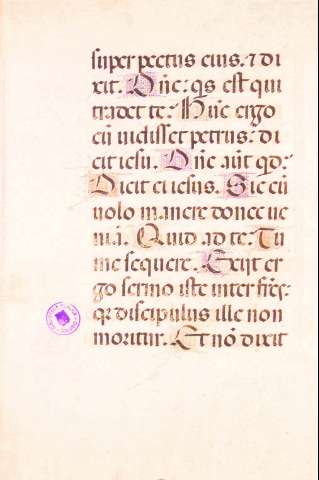 super pectus eius. ⁊ di
xit. Dñe: qs est qui
tradet te: Hũc ergo
cũ uidisset petrus: di
cit iesu. Dñe aũt qd:
Dicit ei iesus. Sic eũ
uolo manere donec ue
niã. Quid ad te: Tu
me sequere. Exiit er
go sermo iste inter frẽs:
qꝛ discipulus ille non
moritur. Et nõ dixit